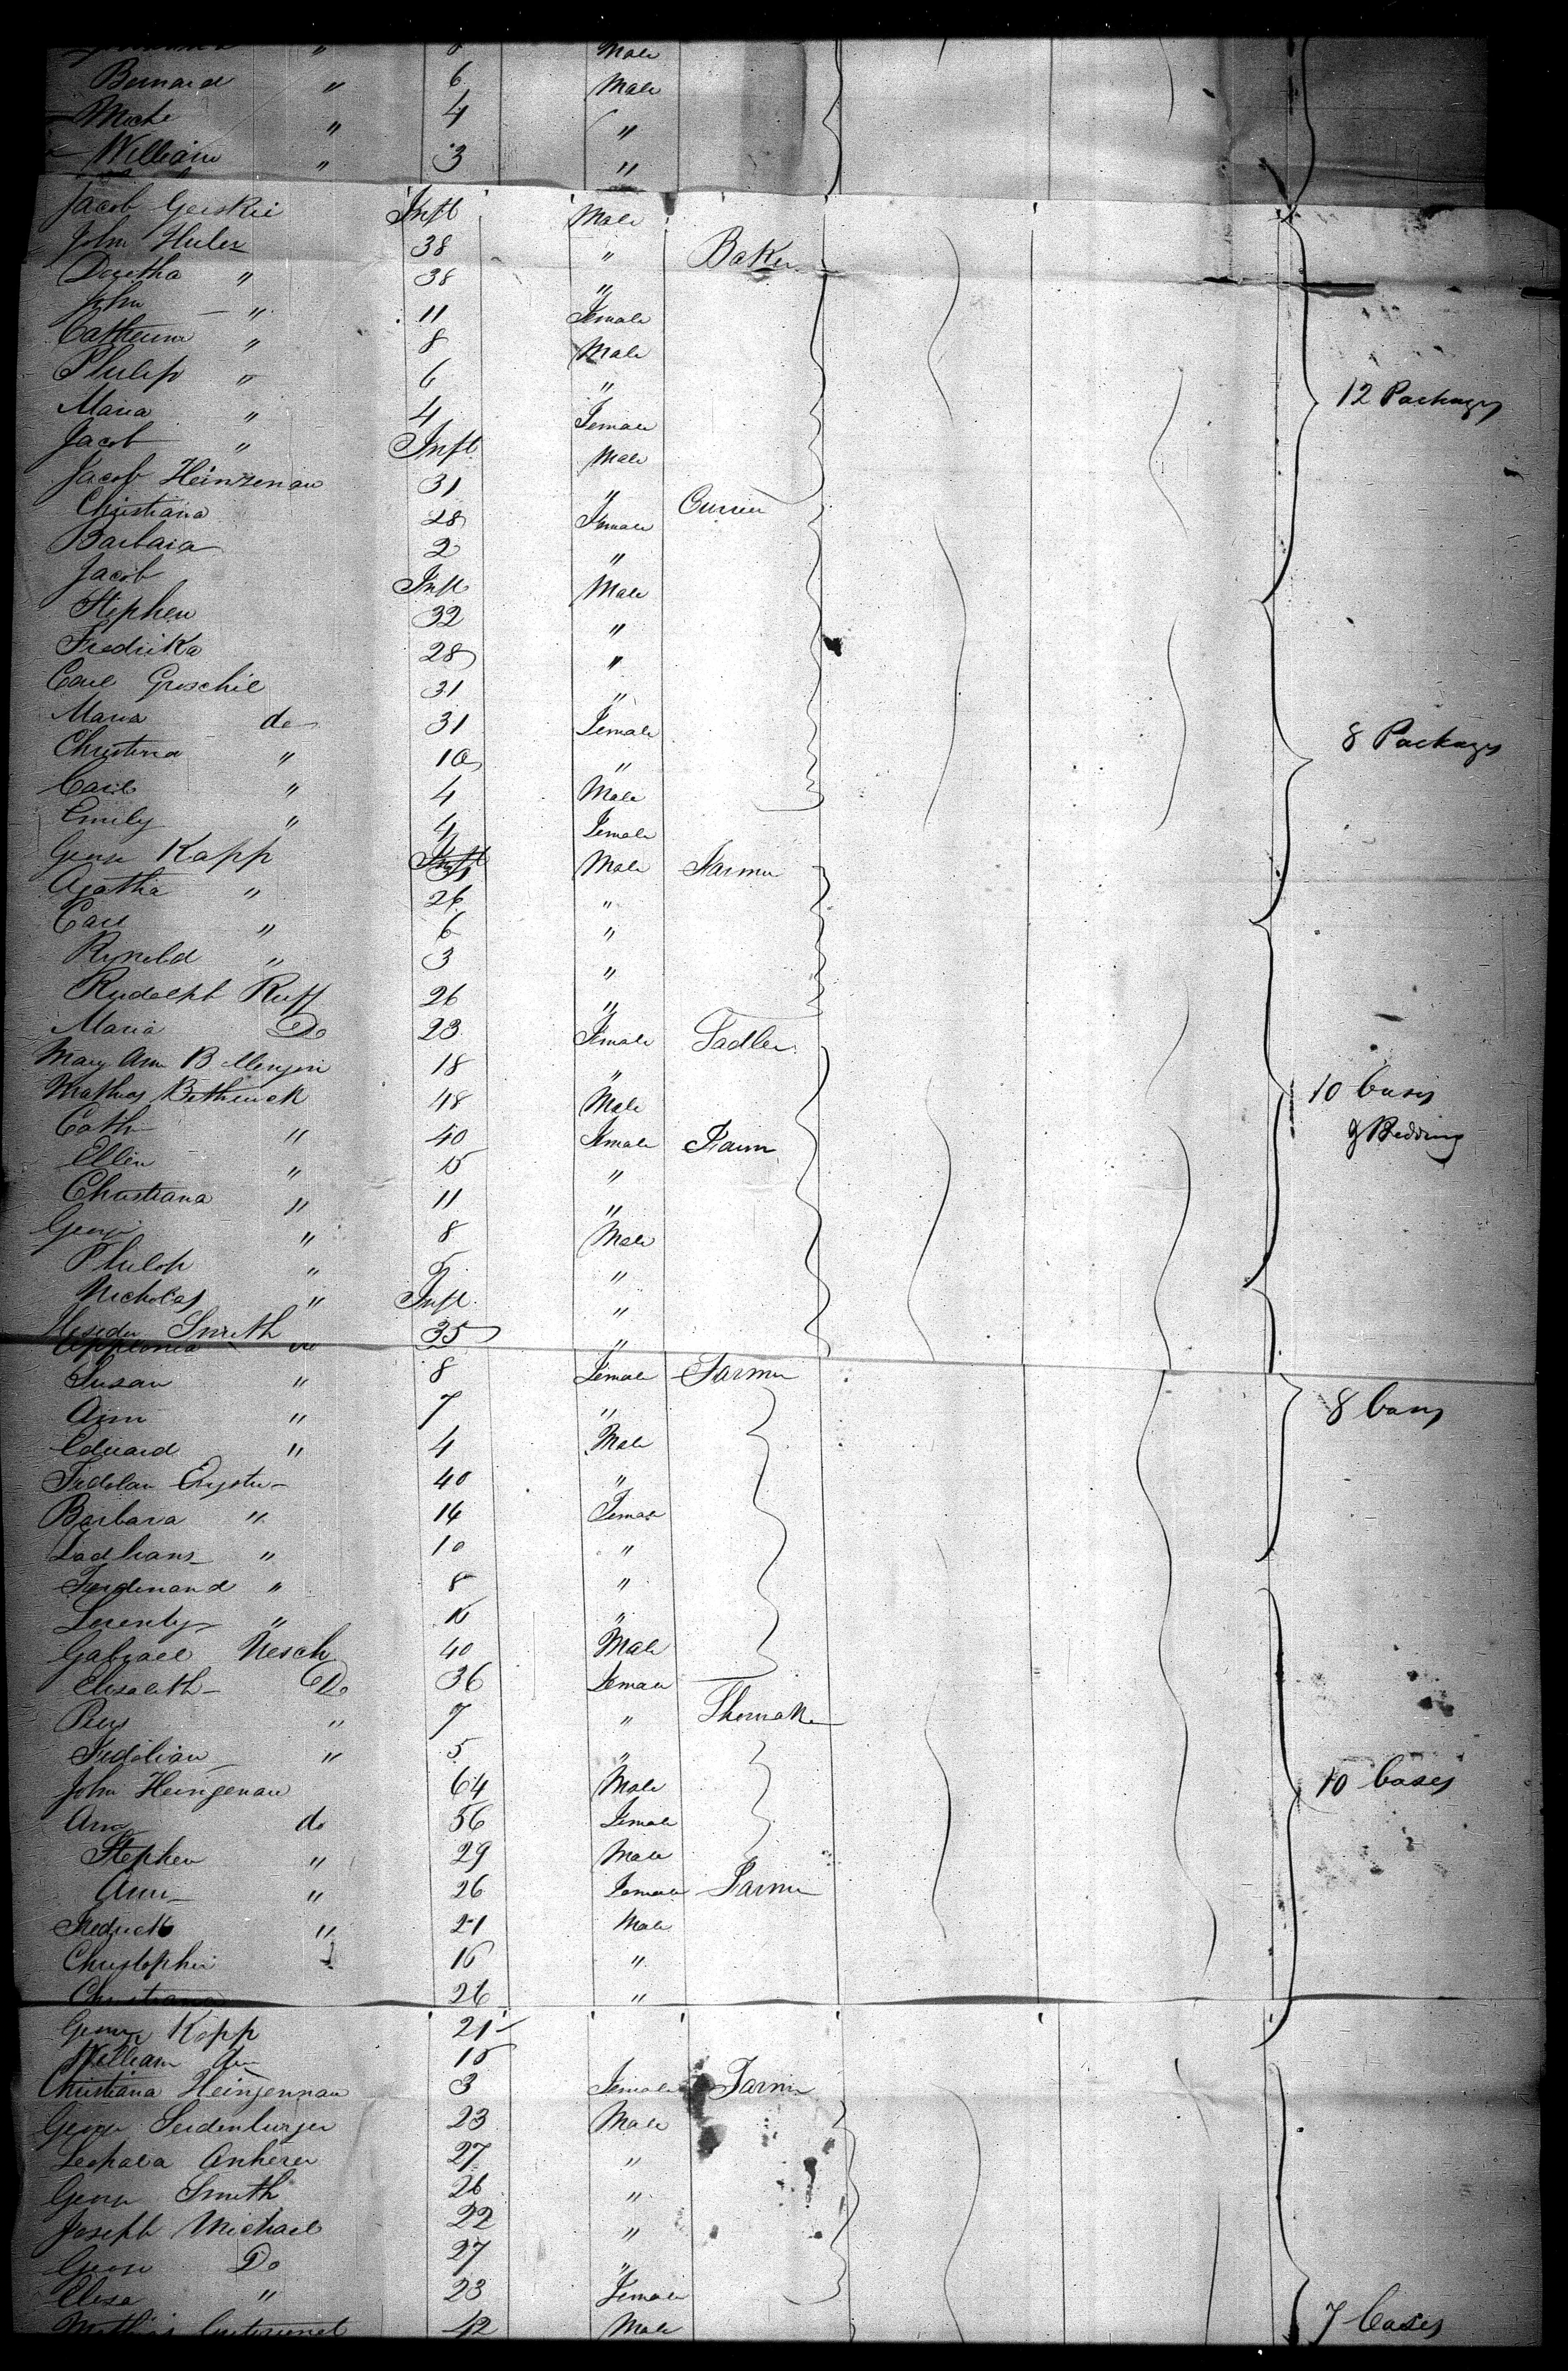 " Male
Bernard " 6 Male
" 4 "
William " 3 "
Jacob Geiskie Inft Male
John Huler 38 " Baker
Doretha " 38 "
John " 11 Female
Catherine " 8 Male
Philip " 6 "
Maria " 4 Female
Jacob " Inft Male
12 Packages
Jacob Heinzenau 31 " Currier
Christiana 28 Female
Barbara 2 "
Jacob Inft Male
Stephen 32 "
Fredrika 28 "
Carl Groschil 31 "
Maria do 31 Female
Christina " 10 "
8 Packages
Carl " 4 Male
Emily " 4 Female
George Kapp 31 Male Farmer
Agatha " 26 "
Carl " 6 "
Rynold " 3 "
Rudolph Ruff 26 "
Maria Do 23 Female Sadler
Mary Ann 18 "
Mathias Bethrick 48 Male
10 Cases
Cath " 40 Female Farm
9 Bedding
Ellen " 15 "
Christiana " 11 "
George " 8 Male
Philop " 5 "
Nicholas " Inft "
Smith 35 "
Applonia do
Susan " 8 Female Farmer
Ann " 7 "
8 Cases
Edward " 4 Male
40 "
Barbara " 14 Female
" 10 "
Ferdinand " 8 "
" 15 "
Gabrael Nesch 40 Male
Elisabeth Do 36 Female
" 7 "
Fidelian " 5 "
John Heingenau 64 Male
10 Cases
Ann do 56 Female
Stephen " 29 Male
Ann " 26 Female Farmer
Fredrick " 21 Male
Christopher " 15 "
Christiana 26 "
George Kopp 21
William do 15
Christiana Heingennau 3 Female Farmer
George Seidenburger 23 Male
Leopald Anherer 27 "
George Smith 26 "
Joseph Michael 22 "
George Do 27 "
Elisa " 23 Female
Mathias 42 Male
7 Cases